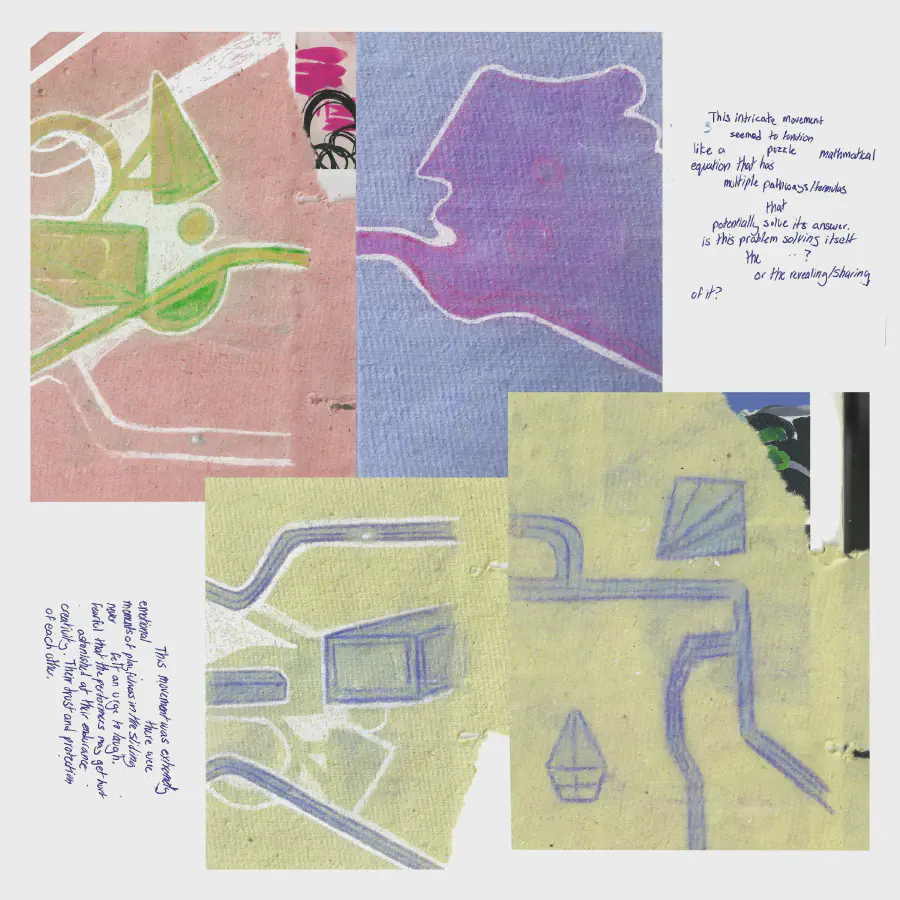 This intricate movement
seemed to function
like a puzzle mathmatical
equation that has
multiple pathways/formulas
that
potentially solve its answer.
is this problem solving itself
the ?
or the revealing/sharing
of it?
This movement was extremely
emotional there were
moments of playfulness in the sliding
never felt an urge to laugh.
fearful that the performers may get hurt
astonished at their endurance
creativity. Their trust and protection
of each other.